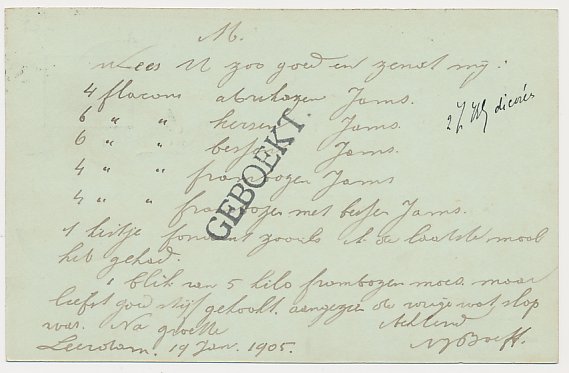 M.
Wees U zoo goed en zendt mij:
4 flacons abrikozen Jams.
6 " " kersen Jams.
6 " " bessen Jams.
4 " " frambozen Jams
4 " " frambozen met bessen Jams.
1 fondant zooals ik de laatste maal
heb gehad.
1 blik van 5 kilo frambozen moes, maar
liefst goed stijf gekookt, aangezien de vorige wat slap
was. Na groete
Leerdam. 19 Jan. 1905.
GEBOEKT.